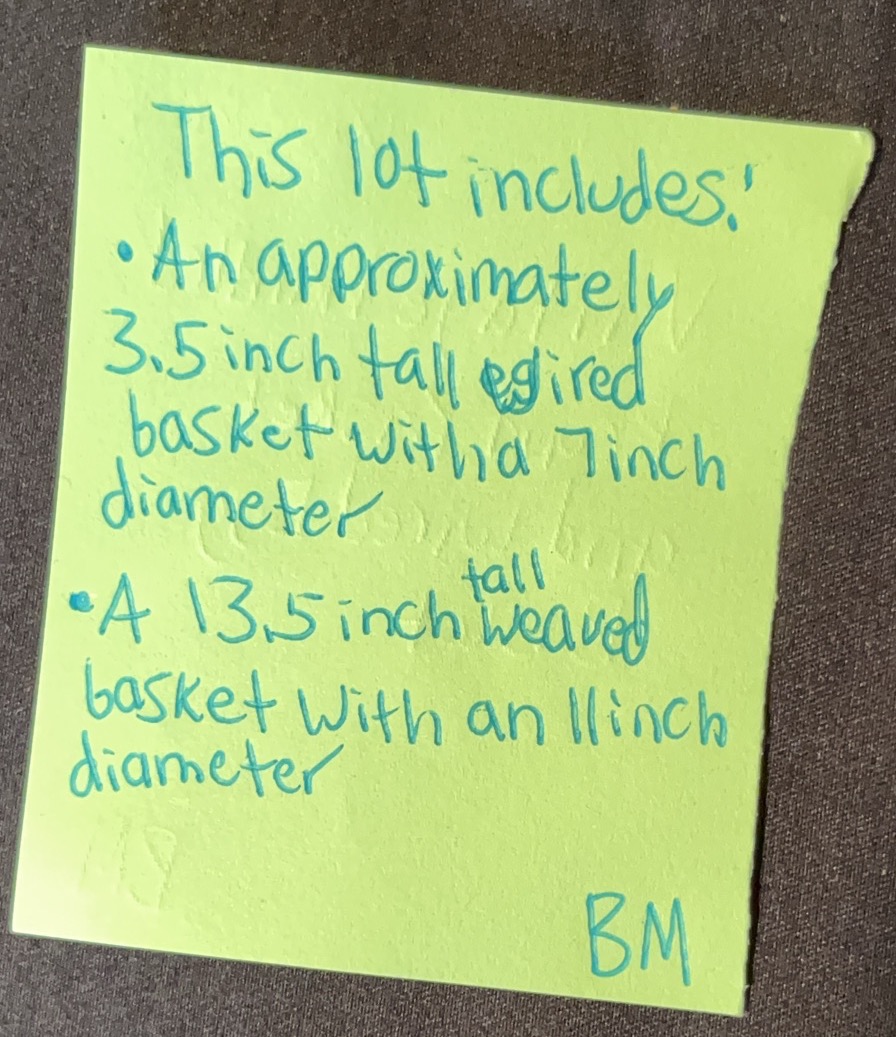 This lot includes:
• An approximately
3.5 inch tall wired
basket with a 7 inch
diameter
• A 13.5 inch tall weaved
basket with an 11 inch
diameter
BM